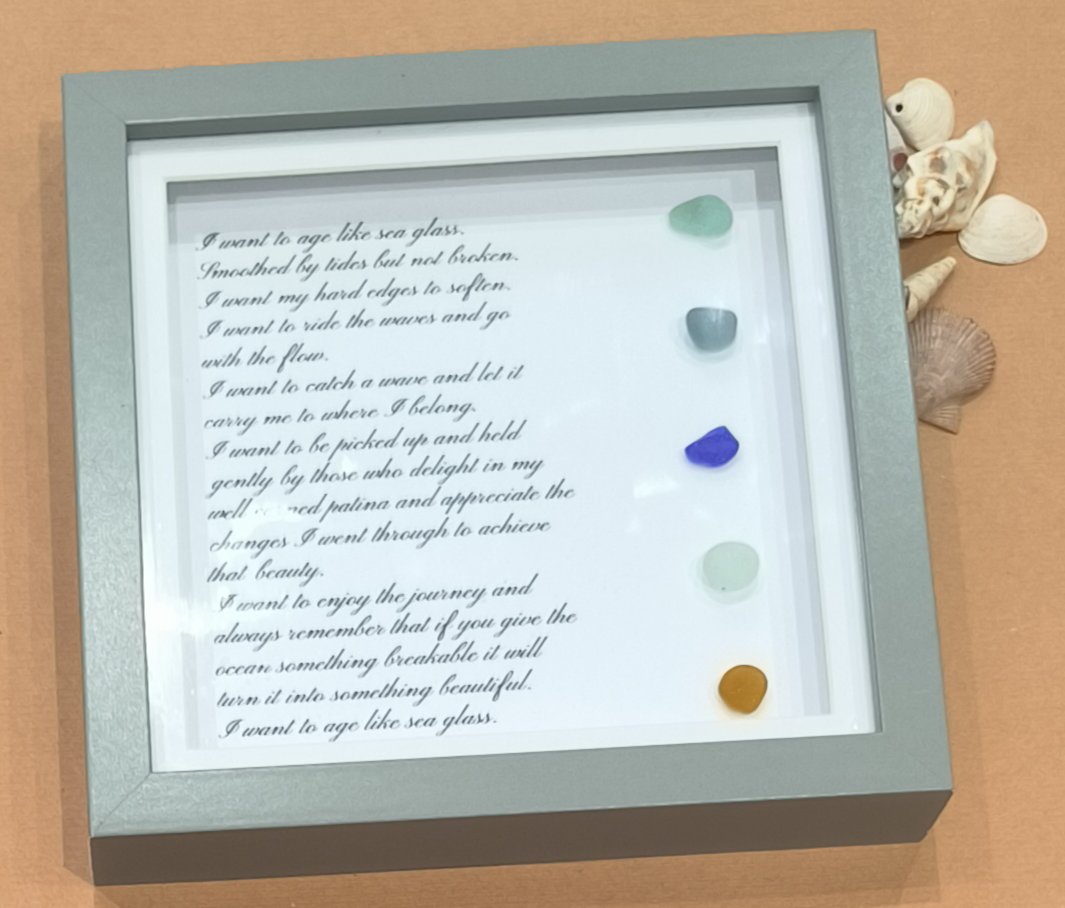 I want to age like sea glass.
Smoothed by tides but not broken.
I want my hard edges to soften.
I want to ride the waves and go
with the flow.
I want to catch a wave and let it
carry me to where I belong.
I want to be picked up and held
gently by those who delight in my
well patina and appreciate the
changes I went through to achieve
that beauty.
I want to enjoy the journey and
always remember that if you give the
ocean something breakable it will
turn it into something beautiful.
I want to age like sea glass.